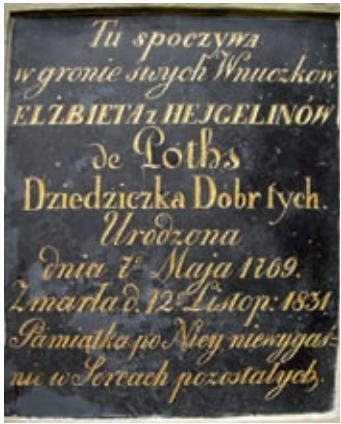 Tu spoczywa
w gronie swych Wnuczków
ELŻBIETA z HEJGELINÓW
de Poths
Dziedziczka Dobr tych.
Urodzona
dnia 7º Maja 1769.
Zmarła d. 12º Listop: 1831
Pamiątka po Niey niewygaś-
nie w Sercach pozostałych.